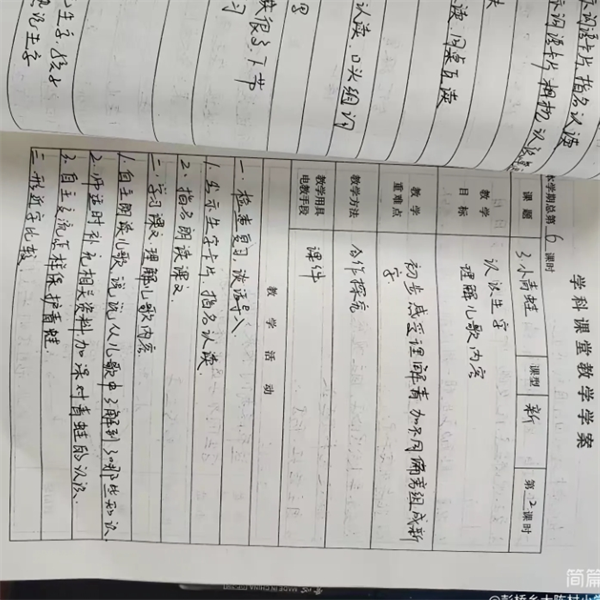 学科课堂教学学案
本学期总第6课时
课题 3小青蛙 课型 新 第2课时
教学目标 认识生字
理解儿歌内容
教学重难点 初步感受理解青加不同偏旁组成新
字
教学方法 合作探究
教学用具
电教手段 课件
教学活动
一、检查复习 谈话导入
1、出示生字卡片,指名认读.
2、指名朗读课文
二、学习课文,理解儿歌内容
1.自主朗读儿歌,说说从儿歌中了解到了哪些知识.
2.师适时补充相关资料加深对青蛙的认识.
3.自主交流怎样保护青蛙.
三、形近字比较.
示词语卡片,指名认读
示词语卡片
读,同桌互读
认读,口头组词
下节
习
生字
MADE IN CHINA
简篇
@彭桥乡大陈村小学